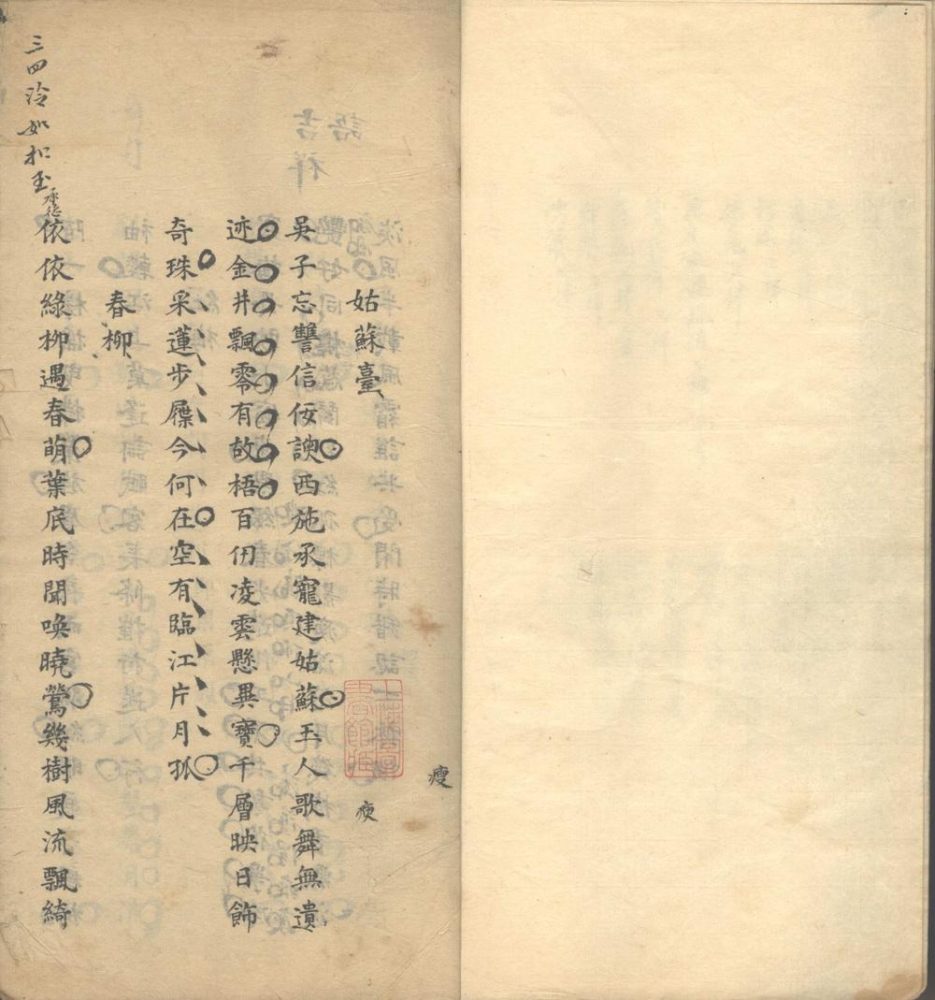 瘦
瘦
姑蘇臺
吳子忘讐信佞諛西施承寵建姑蘇玉人歌舞無遺
迹金井飄零有故梧百仞凌雲懸異寶千層映日飾
奇珠采蓮步屧今何在空有臨江片月孤
春柳
依依綠柳遇春萌葉底時聞喚曉鶯幾樹風流飄綺
三四泠如扣玉